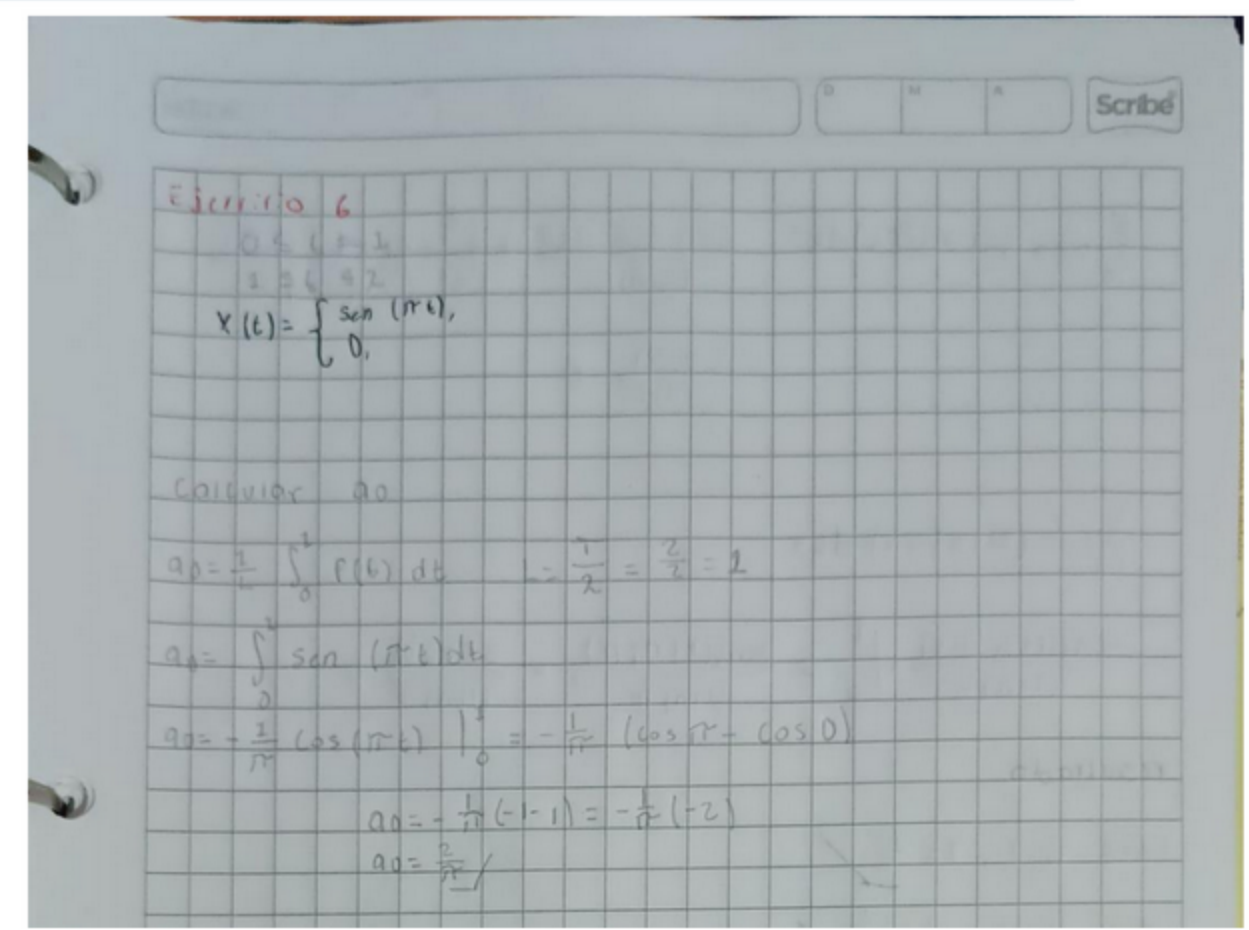 D M A
Scribe
Ejercicio 6
0 ≤ t ≤ 1
1 ≤ t ≤ 2
X(t) = { sen (πt),
0,
Calcular a0
a0 = 1/L ∫₀¹ f(t) dt L = T/2 = 2/2 = 1
a0 = ∫₀¹ sen (πt) dt
a0 = - 1/π cos(πt) |₀¹ = - 1/π (cos π - cos 0)
a0 = - 1/π (-1-1) = - 1/π (-2)
a0 = 2/π